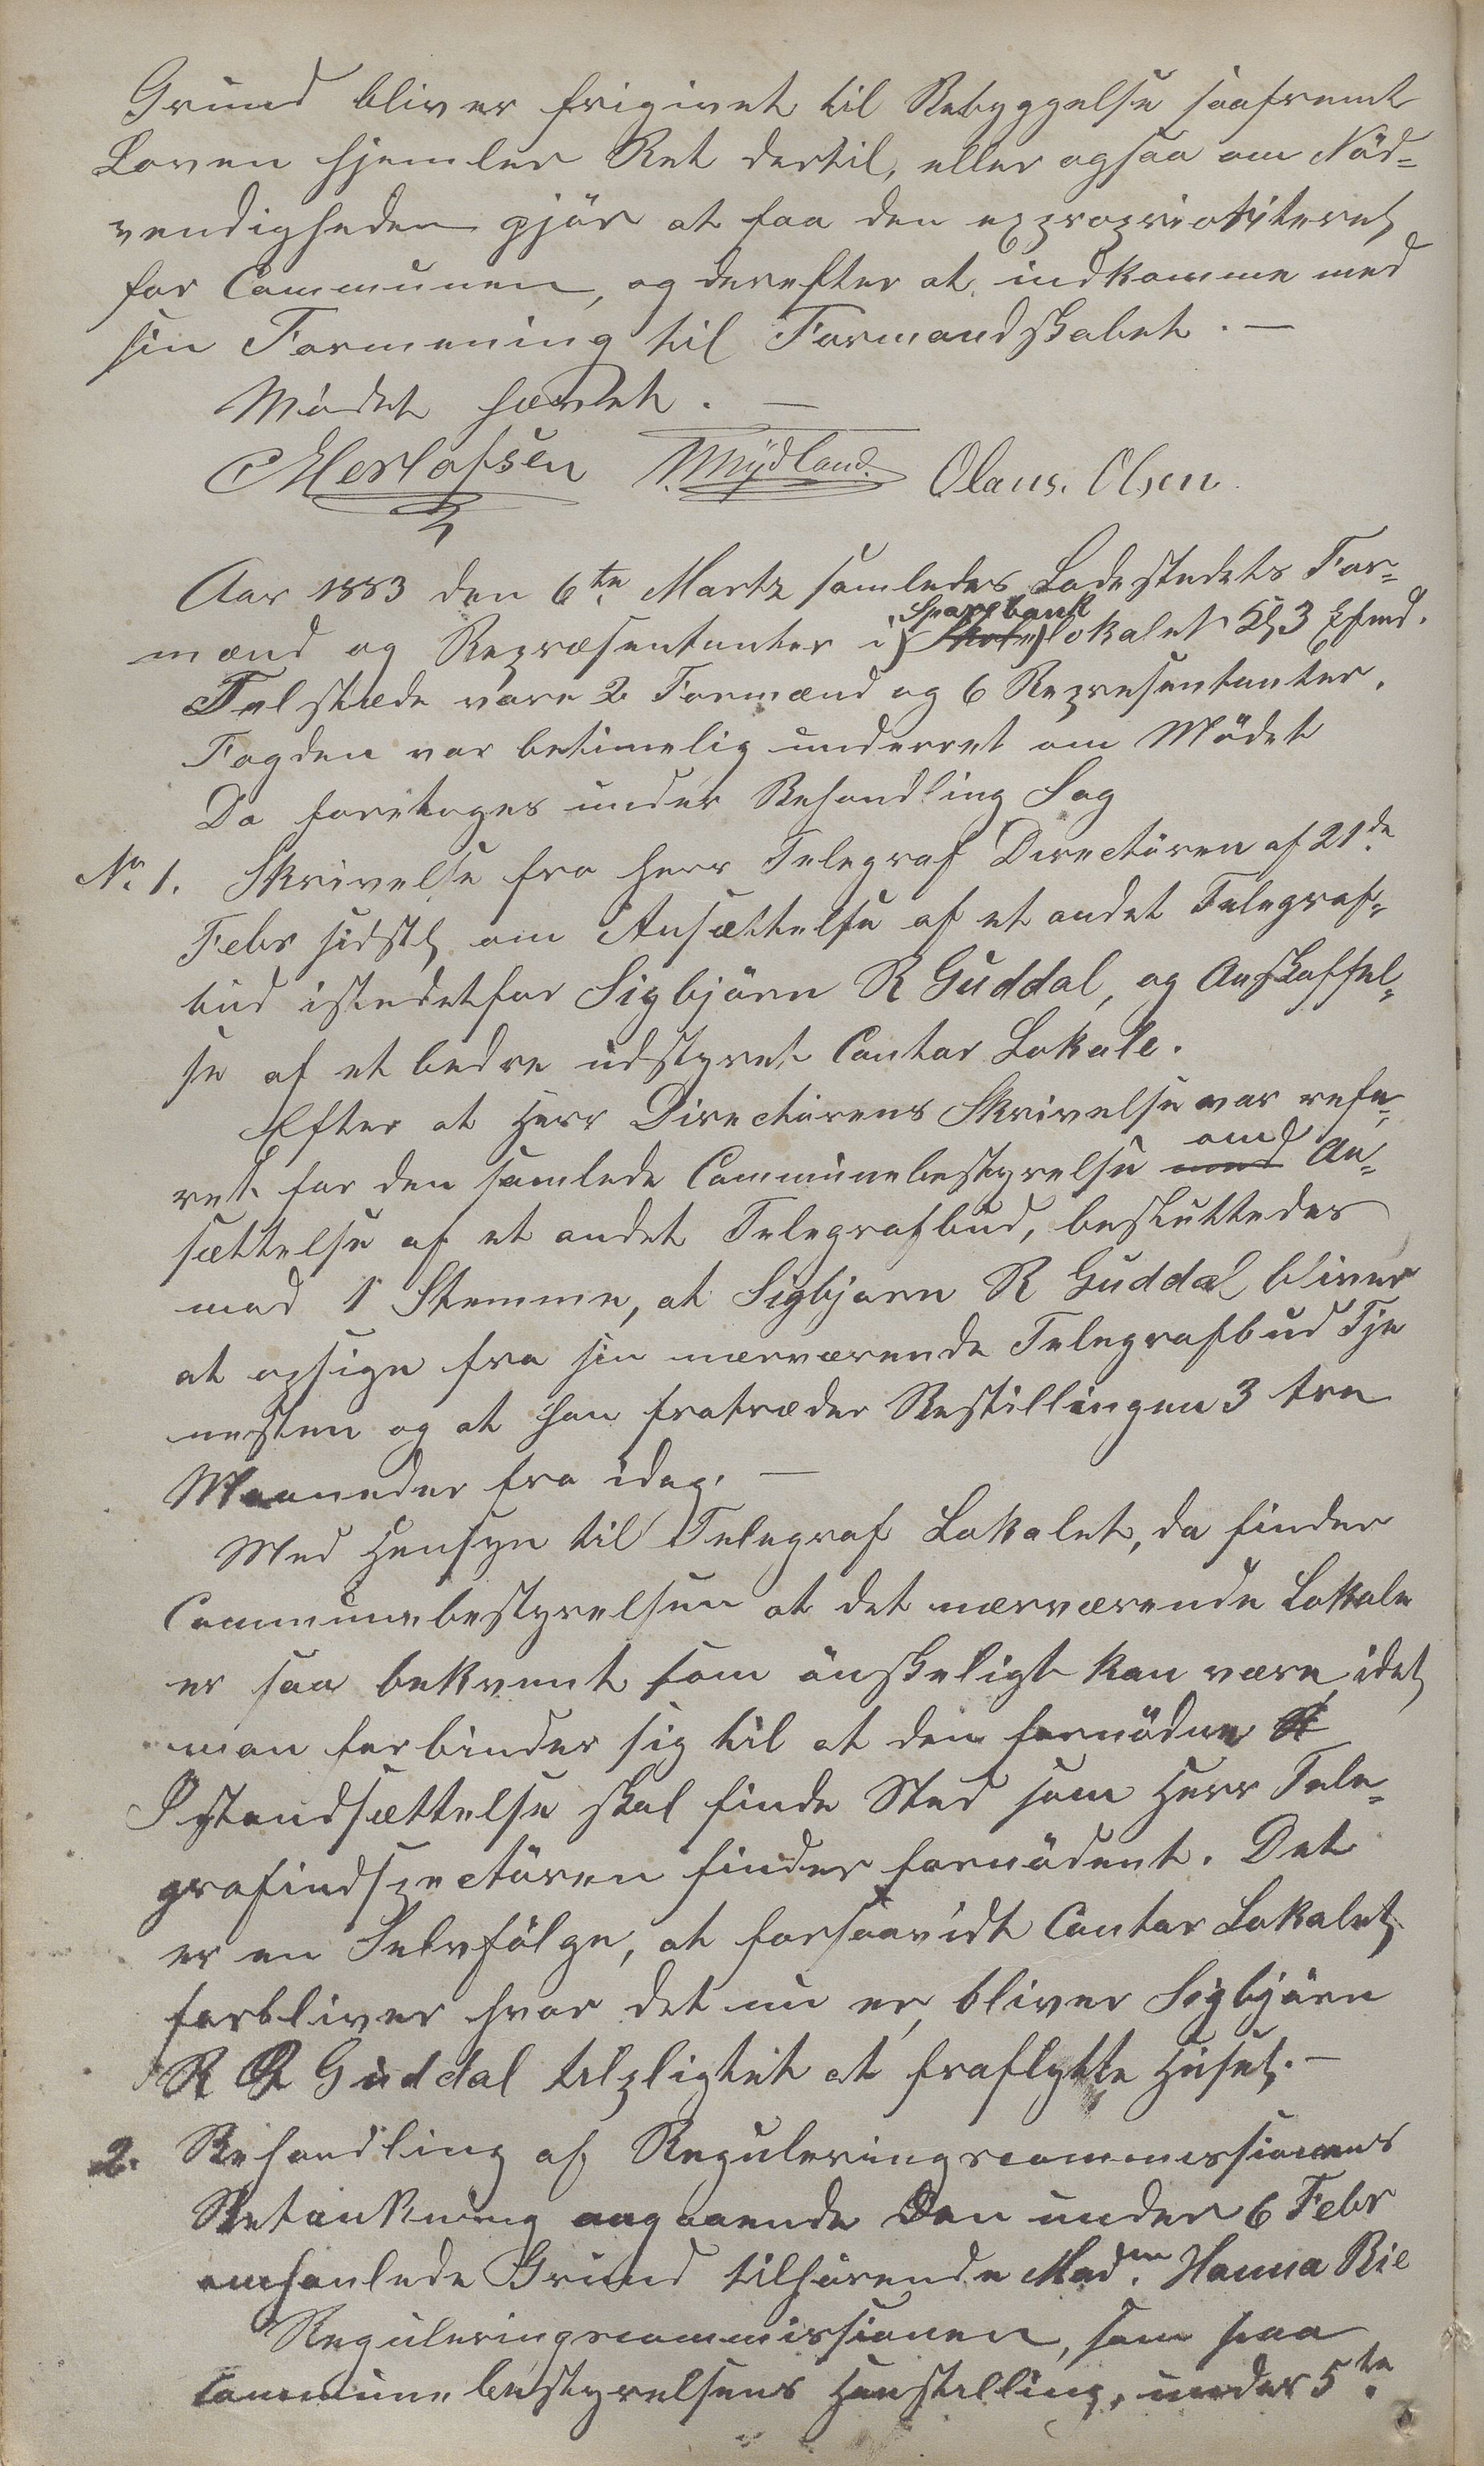 Grund bliver frigivet til Bebyggelse saafremt
Loven hjemler Ret dertil, eller ogsaa om Nöd-
vendigheden gjör at faa den exproprioriteret
for Communen, og derefter at indkomme med
sin Formening til Formandskabet. —
Mödet hævet. —
Olaus. Olsen.
Aar 1883 den 6te Martz samledes Ladestedets For-
mænd og Repræsentanter i Sparebank
Skole lokalet Kl 3 Efmd.
Tilstæde vare 2 Formænd og 6 Representanter.
Fogden var betimelig underret om Mödet
Da foretoges under Behandling Sag
No 1. Skrivelse fra herr Telegraf Directören af 21de
Febr sidstl om Ansættelse af et andet Telegraf-
bud istedetfor Sigbjörn R Guddal, og Anskaffel-
se af et bedre udstyret Contor Lokale.
Efter at Herr Directörens Skrivelse var refe-
ret for den samlede Communebestyrelse med om An-
sættelse af et andet Telegrafbud, besluttedes
mod 1 Stemme, at Sigbjørn R Guddal bliver
at opsige fra sin nærværende Telegrafbud Tje
nesten og at han fratræder Bestillingen 3 tre
Maaneder fra idag. —
Med Hensyn til Telegraf Lokalet, da finder
Communebestyrelsen at det nærværende Lokale
er saa bekvemt som önskeligt kan være, idet
man forbinder sig til at den fornödne
Istandsættelse skal finde Sted som Herr Tele-
grafindspectören finder fornödent. Det
er en Selvfölge, at forsaavidt Contor Lokalet
forbliver hvor det nu er, bliver Sigbjörn
R Guddal tilpligtet at fraflytte Huset. —
2. Behandling af Reguleringscommissionens
Betænkning angaaende Den under 6 Febr
omhanlede Grund tilhörende Madm. Hanna Bie
Reguleringscommissionen, som paa
Communebestyrelsens Henstilling, under 5te